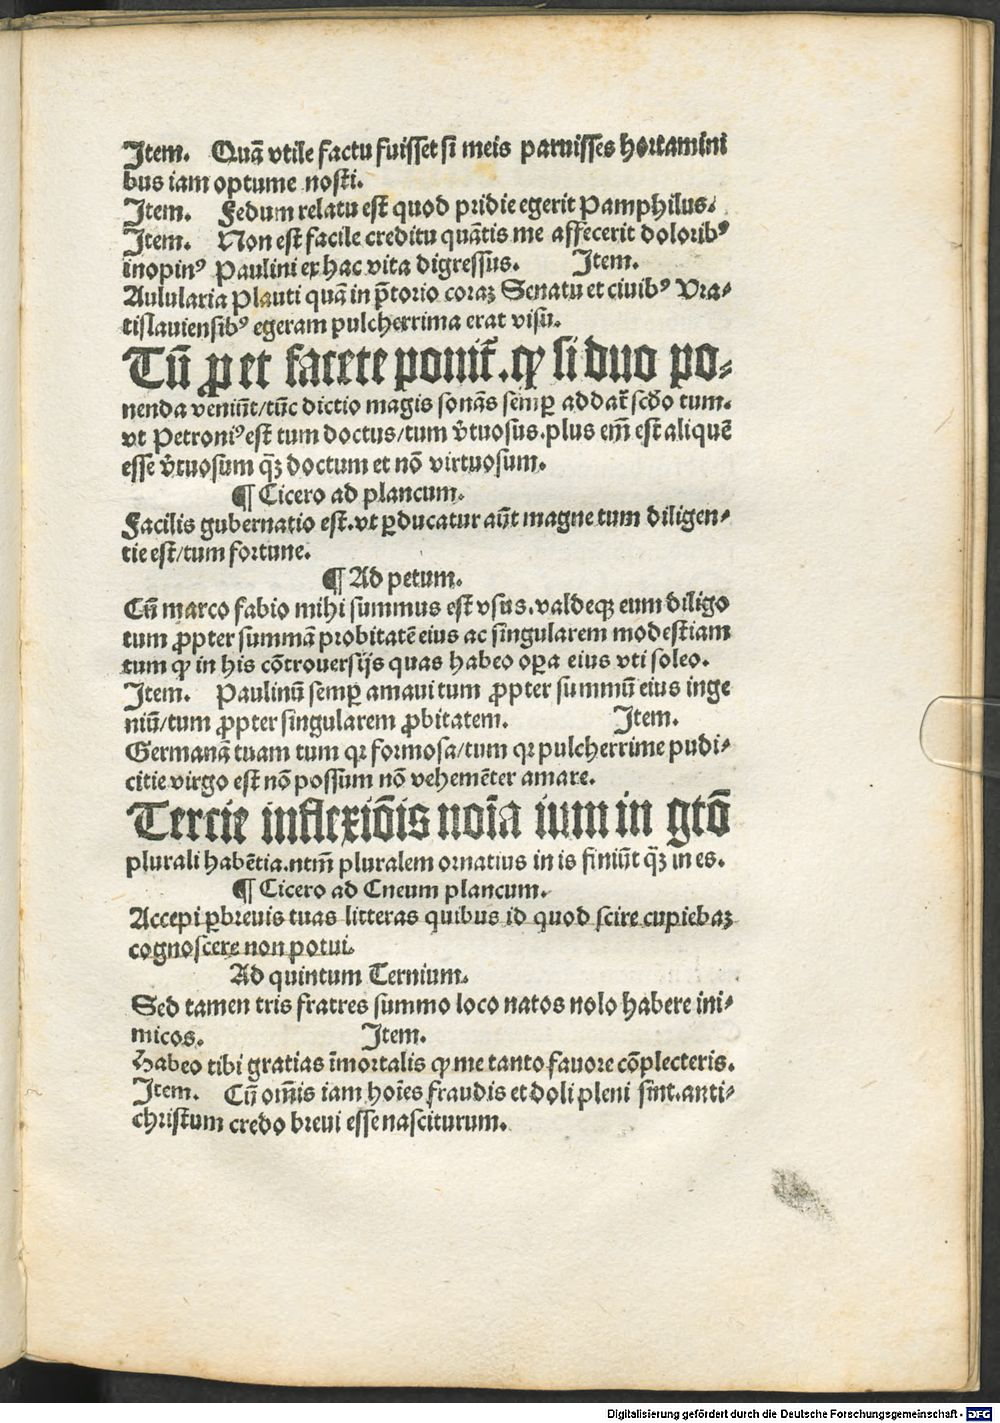 Item. Quā vtile factu fuisset si meis paruisses hortamini
bus iam optume nosti.
Item. Fedum relatu est quod pridie egerit Pamphilus.
Item. Non est facile creditu quātis me affecerit doloribꝰ
inopinꝰ Paulini ex hac vita digressus. Item.
Aulularia Plauti quā in p̄torio coraꝫ Senatu et ciuibꝰ Vra⸗
tislauiensibꝰ egeram pulcherrima erat visu.
Tū ꝓ et facete ponit̄. ꝙ si duo po⸗
nenda veniūt/tūc dictio magis sonās semꝑ addat̄ scďo tum.
vt Petroniꝰ est tum doctus/tum v̓tuosus. plus em̄ est aliquē
esse v̓tuosum qꝫ̄ doctum et nō virtuosum.
¶ Cicero ad plancum.
Facilis gubernatio est. vt ꝑducatur aūt magne tum diligen⸗
tie est/tum fortune.
¶ Ad petum.
Cū marco fabio mihi summus est vsus. valdeqꝫ eum diligo
tum ꝓpter summā probitatē eius ac singularem modestiam
tum ꝙ in his cōtrouersijs quas habeo oꝑa eius vti soleo.
Item. Paulinū semꝑ amaui tum ꝓpter summū eius inge
niū/tum ꝓpter singularem ꝓbitatem. Item.
Germanā tuam tum qꝛ formosa/tum qꝛ pulcherrime pudi⸗
citie virgo est nō possum nō vehemēter amare.
Tercie inflexiōis noīa ium in gtō
plurali habētia. ntm̄ pluralem ornatius in is finiūt qꝫ̄ in es.
¶ Cicero ad Cneum plancum.
Accepi ꝑbreuis tuas litteras quibus id quod scire cupiebaꝫ
cognoscere non potui.
Ad quintum Ternium.
Sed tamen tris fratres summo loco natos nolo habere ini⸗
micos. Item.
Habeo tibi gratias īmortalis ꝙ me tanto fauore cōplecteris.
Item. Cū om̄is iam hoīes fraudis et doli pleni sint. anti⸗
christum credo breui esse nasciturum.
Digitalisierung gefördert durch die Deutsche Forschungsgemeinschaft - DFG